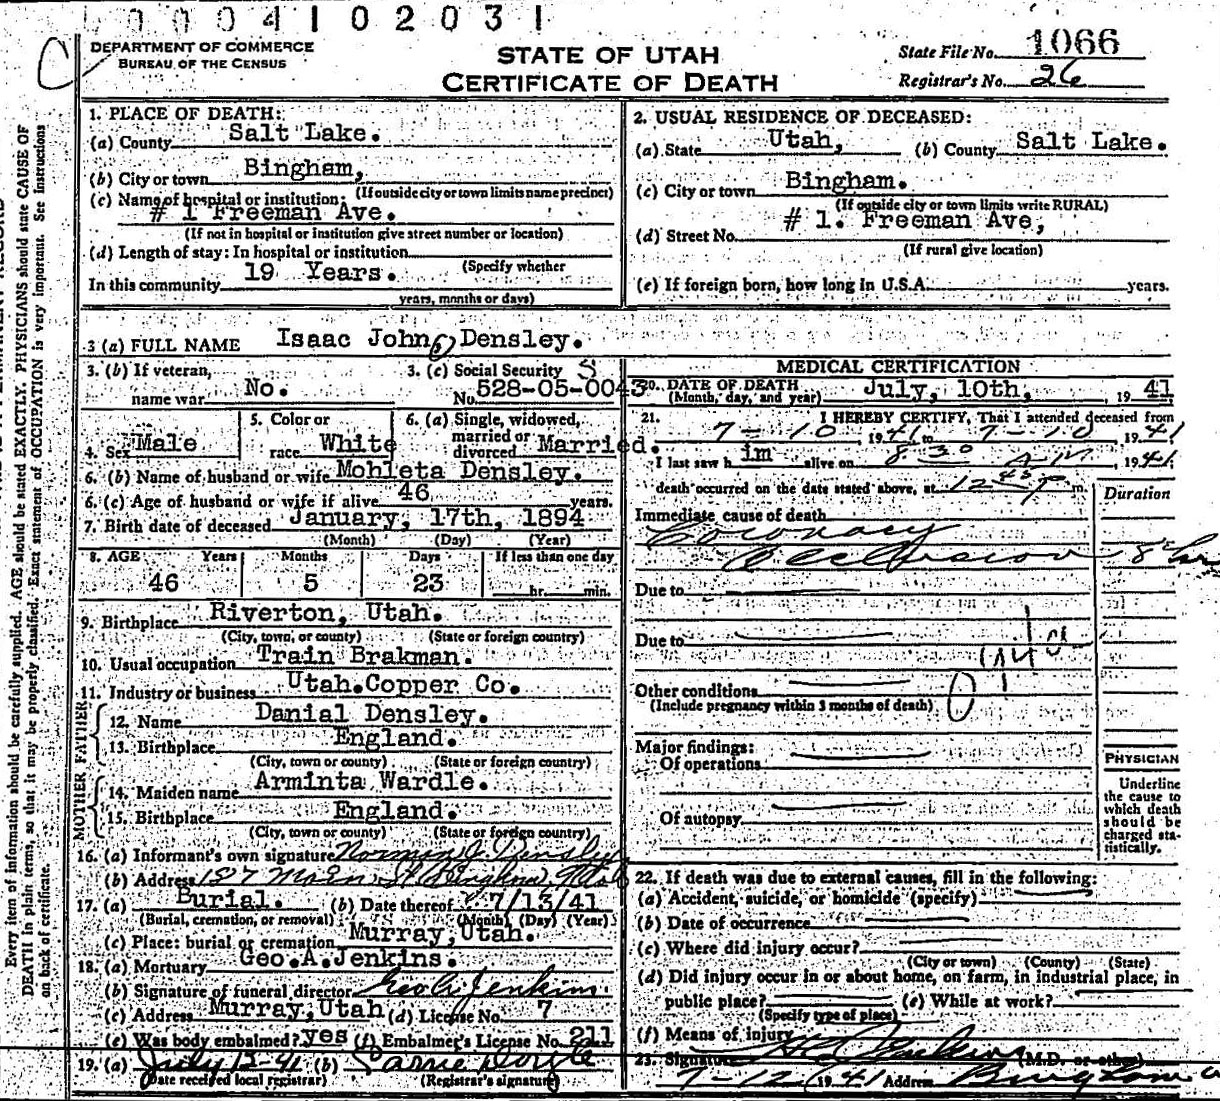 00041 02031
DEPARTMENT OF COMMERCE
BUREAU OF THE CENSUS
STATE OF UTAH
CERTIFICATE OF DEATH
State File No. 1066
Registrar's No. 26
1. PLACE OF DEATH:
(a) County Salt Lake.
(b) City or town Bingham,
(If outside city or town limits name precinct)
(c) Name of hospital or institution:
# 1 Freeman Ave.
(If not in hospital or institution give street number or location)
(d) Length of stay: In hospital or institution
(Specify whether
In this community 19 Years.
years, months or days)
2. USUAL RESIDENCE OF DECEASED:
(a) State Utah, (b) County Salt Lake.
(c) City or town Bingham.
(If outside city or town limits write RURAL)
(d) Street No. # 1. Freeman Ave,
(If rural give location)
(e) If foreign born, how long in U.S.A. years.
3 (a) FULL NAME Isaac John Densley.
3. (b) If veteran, name war No.
3. (c) Social Security No. 528-05-0043
4. Sex Male
5. Color or race White
6. (a) Single, widowed, married or divorced Married.
6. (b) Name of husband or wife Mohleta Densley.
6. (c) Age of husband or wife if alive 46 years.
7. Birth date of deceased January, 17th, 1894
(Month) (Day) (Year)
8. AGE Years Months Days If less than one day
46 5 23 hr. min.
9. Birthplace Riverton, Utah.
(City, town, or county) (State or foreign country)
10. Usual occupation Train Brakman.
11. Industry or business Utah.Copper Co.
FATHER
12. Name Danial Densley.
13. Birthplace England.
(City, town or county) (State or foreign country)
MOTHER
14. Maiden name Arminta Wardle.
15. Birthplace England.
(City, town or county) (State or foreign country)
16. (a) Informant's own signature Norman J. Densley
(b) Address 187 Main St Bingham, Utah
17. (a) Burial. (b) Date thereof 7/13/41
(Burial, cremation, or removal) (Month) (Day) (Year)
(c) Place: burial or cremation Murray, Utah.
18. (a) Mortuary Geo.A.Jenkins.
(b) Signature of funeral director Geo A. Jenkins.
(c) Address Murray, Utah (d) License No. 7
(e) Was body embalmed? yes (f) Embalmer's License No. 211
19. (a) July 12-41 (b)
(Date received local registrar) (Registrar's signature)
MEDICAL CERTIFICATION
20. DATE OF DEATH July, 10th, 1941
(Month, day, and year)
21. I HEREBY CERTIFY, That I attended deceased from
7-10 1941 to 7-10 1941
I last saw h im alive on 8 30 AM, 1941;
death occurred on the date stated above, at 12 45 P m.
Duration
Immediate cause of death
Coronary
occlusion 8 hr
Due to
Due to
Other conditions
(Include pregnancy within 3 months of death)
Major findings:
Of operations
Of autopsy
PHYSICIAN
Underline
the cause to
which death
should be
charged sta-
tistically.
22. If death was due to external causes, fill in the following:
(a) Accident, suicide, or homicide (specify)
(b) Date of occurrence
(c) Where did injury occur?
(City or town) (County) (State)
(d) Did injury occur in or about home, on farm, in industrial place, in
public place? (e) While at work?
(Specify type of place)
(f) Means of injury
23. Signature (M.D. or other)
7-12 1941 Address Bingham
Every item of information should be carefully supplied. AGE should be stated EXACTLY. PHYSICIANS should state CAUSE OF
DEATH in plain terms, so that it may be properly classified. Exact statement of OCCUPATION is very important. See instructions
on back of certificate.